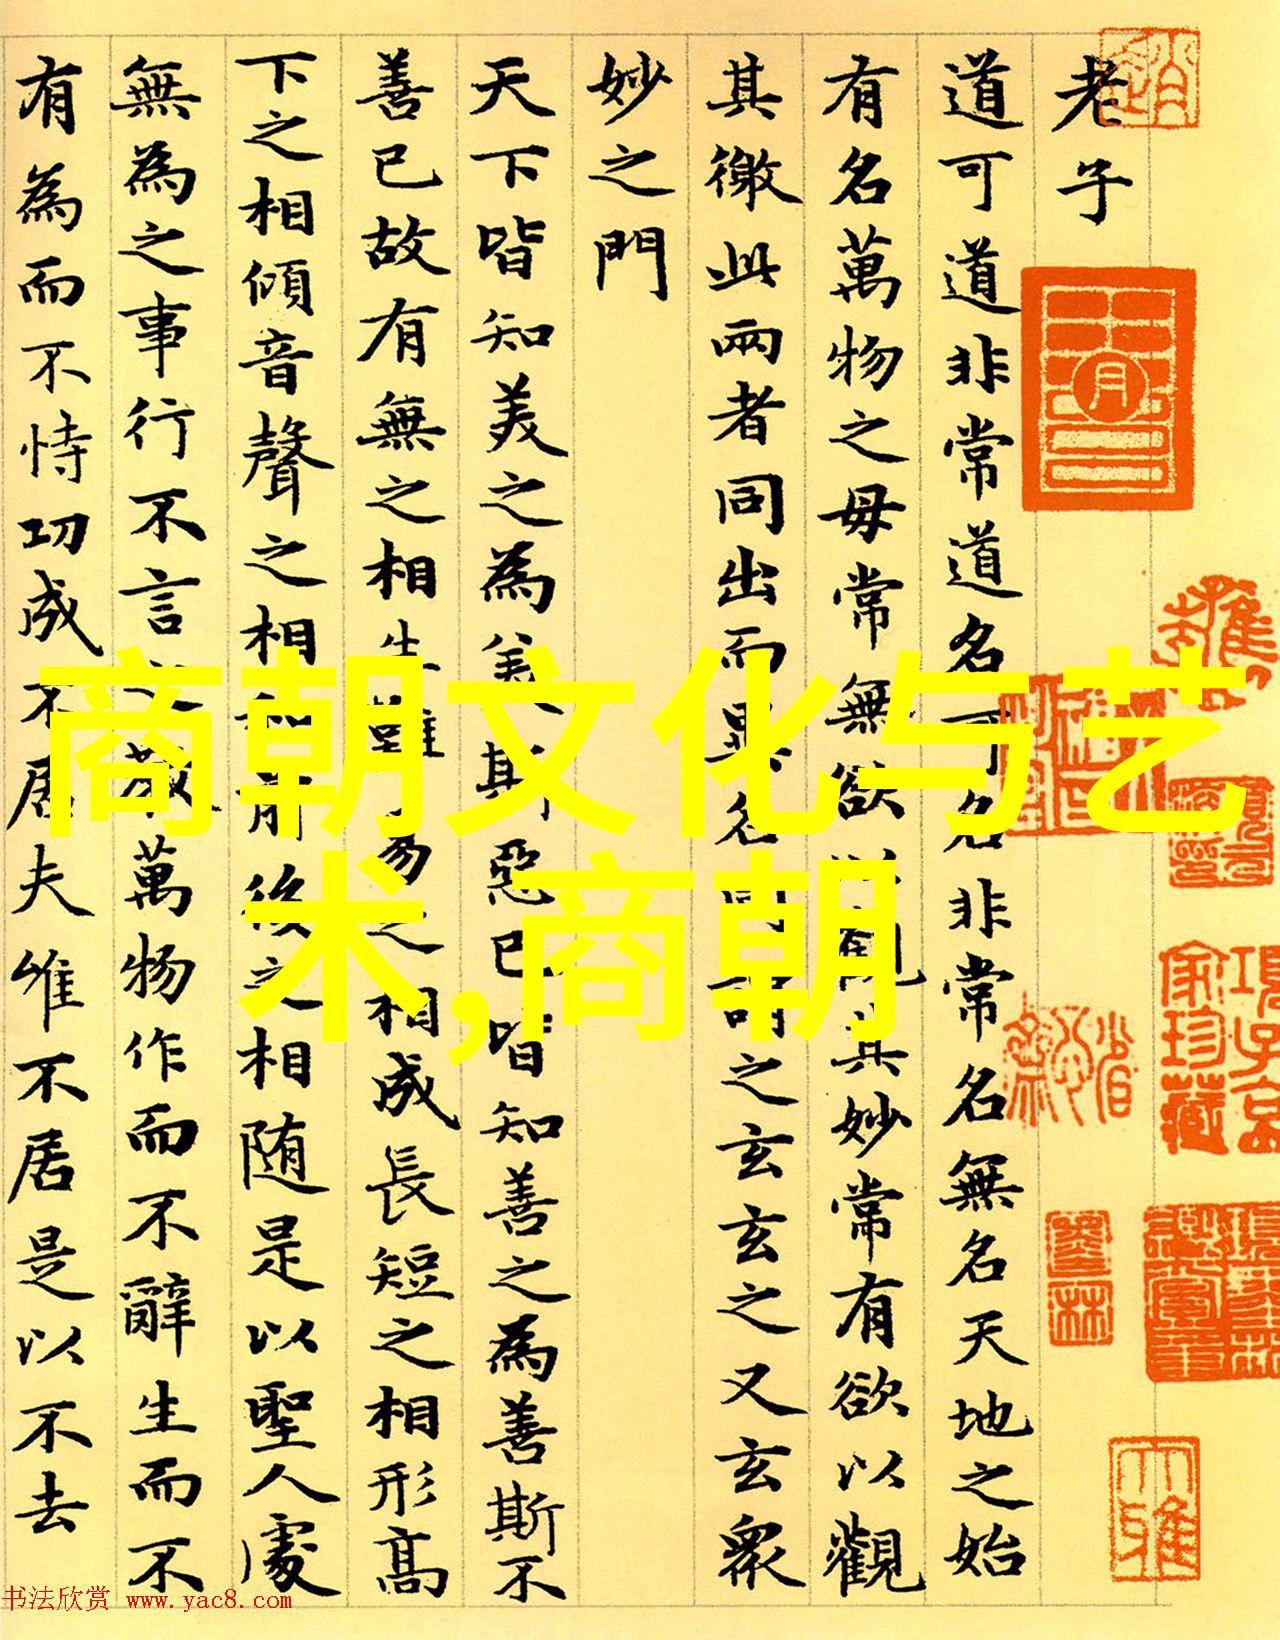 老子
道可道非常道名可名非常名無名天地之始
有名萬物之母常無欲以觀其妙常有欲以觀
其徼此兩者同出而異名同謂之玄玄之又玄衆
妙之門
天下皆知美之為美斯惡已皆知善之為善斯不
善已故有無之相生難易之相成長短之相形髙
下之相傾音聲之相和前後之相随是以聖人處
無為之事行不言之教萬物作而不辭生而不
有為而不恃功成不居夫唯不居是以不去
商朝文化与艺
术,商朝
项子京
家珍藏
大雅
书法欣赏 www.yac8.com